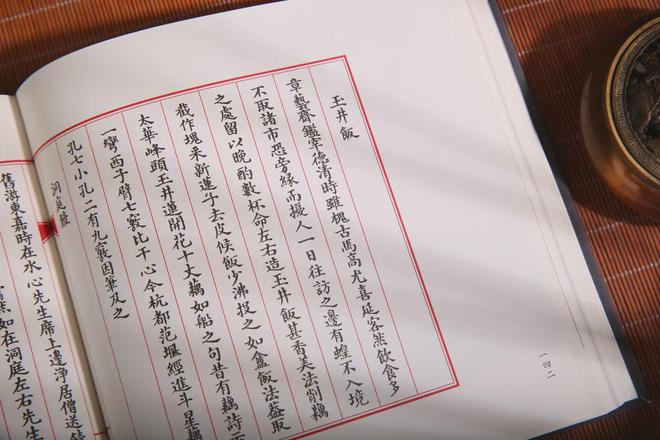 玉井飯
章藝齋鑑宰德清時雖槐古馬高尤喜延客然飲食多
不取諸市恐旁緣而擾人一日往訪之邊有蝗不入境
之處留以晚酌數杯命左右造玉井飯甚香美法削藕
截作塊采新蓮子去皮候飯少沸投之如盦飯法蓋取
太華峰頭玉井蓮開花十丈藕如船之句昔有藕詩云
一彎西子臂七竅比干心今杭都范堰經進斗星藕
孔七小孔二有九竅因筆及之
洞庭饐
舊游東嘉時在水心先生席上邊淨居僧送
如在洞庭左右先生
一四二